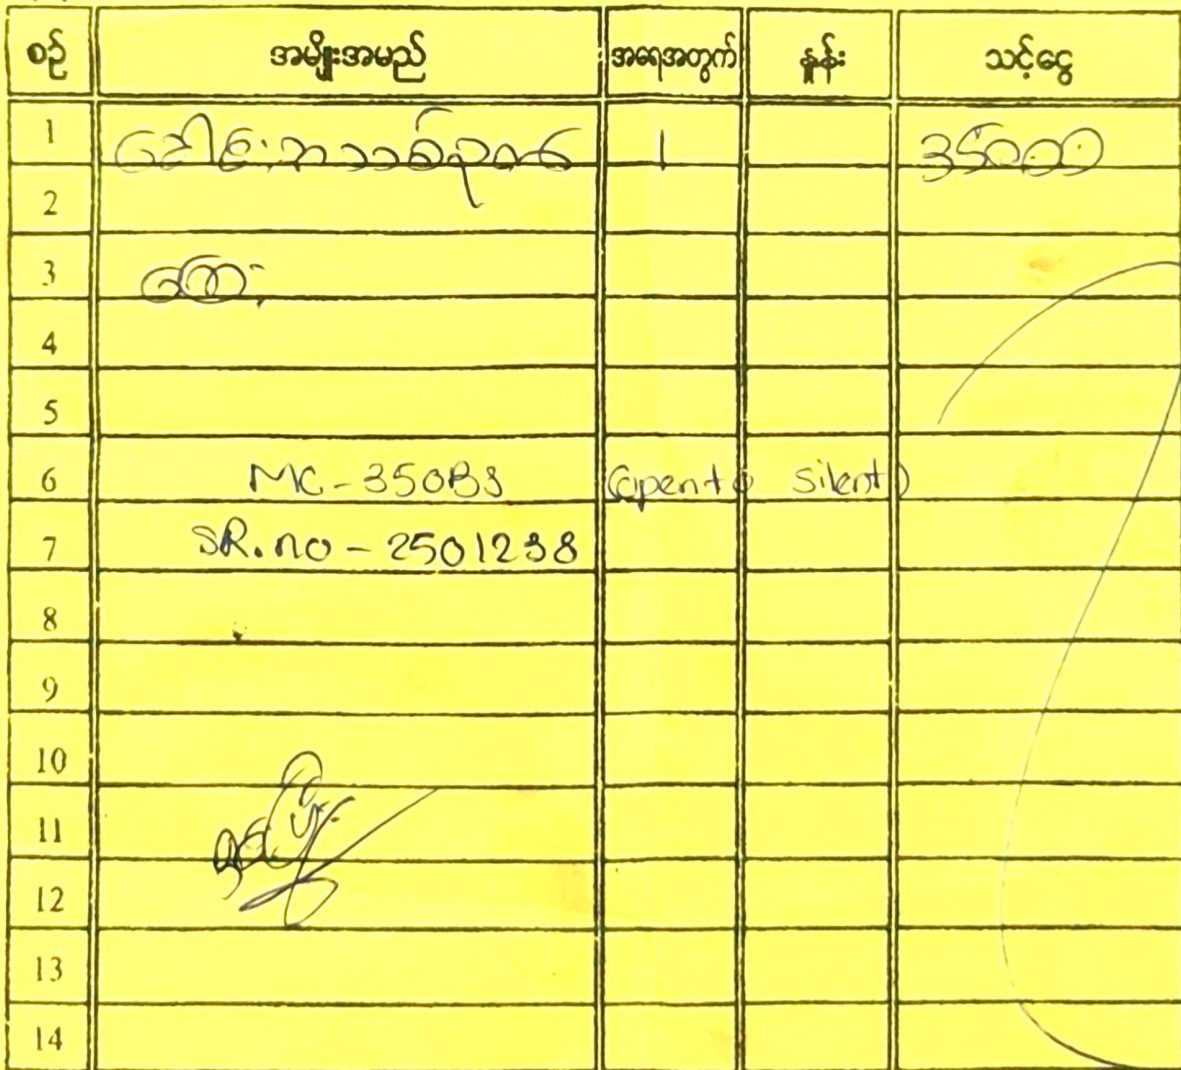 စဉ် အမျိုးအမည် အရေအတွက် နှုန်း သင့်ငွေ
1 ခေါင်းအသစ်လုတ် 1 35000
2
3 ကြေး
4
5
6 MC-350BS (open to silent)
7 SR.no - 2501238
8
9
10
11
12
13
14